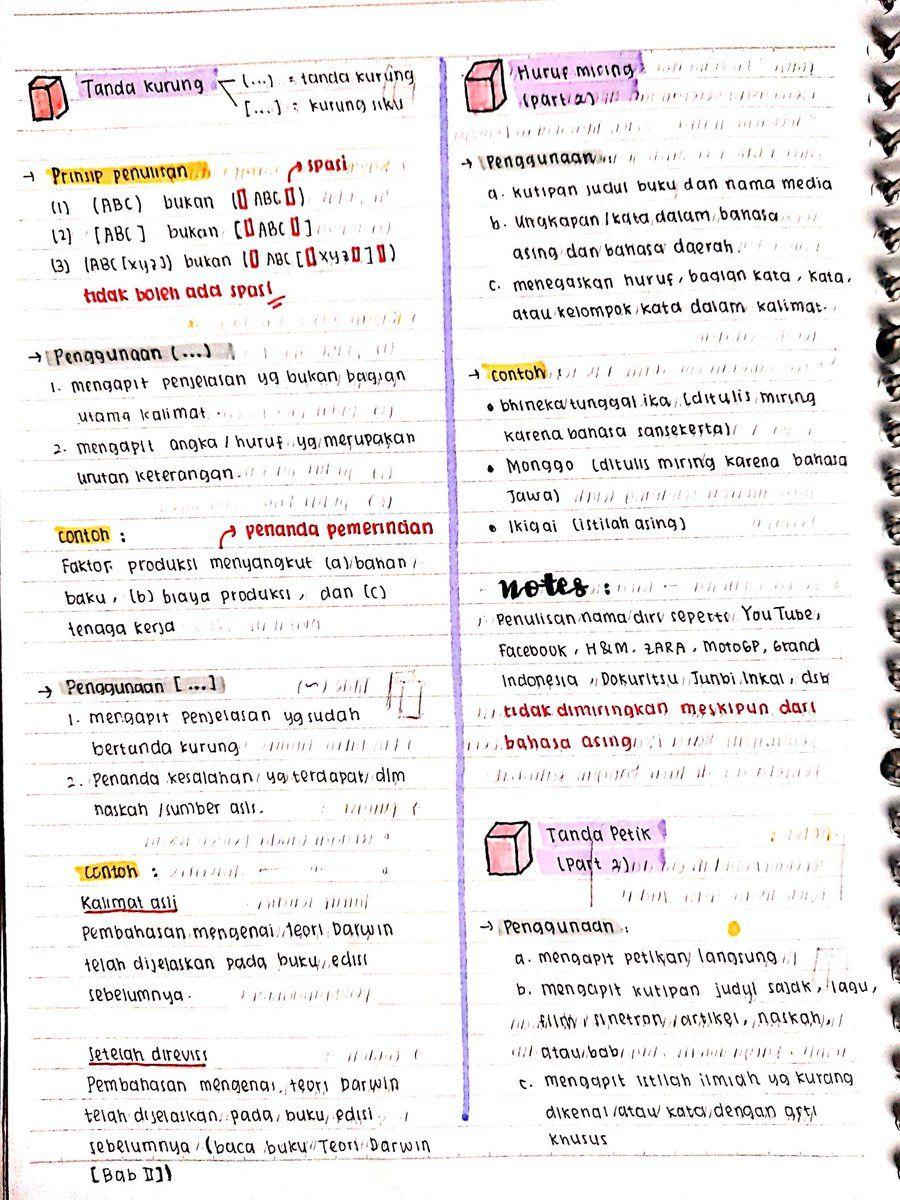 Tanda kurung
(...) = tanda kurung
[...] = kurung siku
→ Prinsip penulisan
spasi
(1) (ABC) bukan (▯ ABC ▯)
(2) [ABC] bukan [▯ ABC ▯]
(3) (ABC [xyz]) bukan (▯ ABC [▯ xyz ▯] ▯)
tidak boleh ada spasi
→ Penggunaan (...)
1. mengapit penjelasan yg bukan bagian
utama kalimat
2. mengapit angka / huruf yg merupakan
urutan keterangan.
contoh :
penanda pemerincian
Faktor produksi menyangkut (a) bahan
baku, (b) biaya produksi, dan (c)
tenaga kerja
→ Penggunaan [...]
1. mengapit penjelasan yg sudah
bertanda kurung
2. Penanda kesalahan yg terdapat dlm
naskah / sumber asli.
contoh :
Kalimat asli
Pembahasan mengenai teori Darwin
telah dijelaskan pada buku edisi
sebelumnya.
Setelah direvisi
Pembahasan mengenai teori Darwin
telah dijelaskan pada buku edisi
sebelumnya (baca buku Teori Darwin
[Bab II])
Huruf miring
(part 2)
→ Penggunaan
a. kutipan judul buku dan nama media
b. Ungkapan / kata dalam bahasa
asing dan bahasa daerah.
c. menegaskan huruf, bagian kata, kata,
atau kelompok kata dalam kalimat.
→ contoh :
• bhineka tunggal ika (ditulis miring
karena bahasa sansekerta)
• Monggo (ditulis miring karena bahasa
Jawa)
• Ikigai (istilah asing)
notes :
Penulisan nama diri seperti YouTube,
Facebook, H&M, ZARA, MotoGP, Grand
Indonesia, Dokuritsu Junbi Inkai, dsb
tidak dimiringkan meskipun dari
bahasa asing
Tanda Petik
(Part 2)
→ Penggunaan :
a. mengapit petikan langsung
b. mengapit kutipan judul sajak, lagu,
film, sinetron, artikel, naskah,
atau bab
c. mengapit istilah ilmiah yg kurang
dikenal atau kata dengan arti
khusus